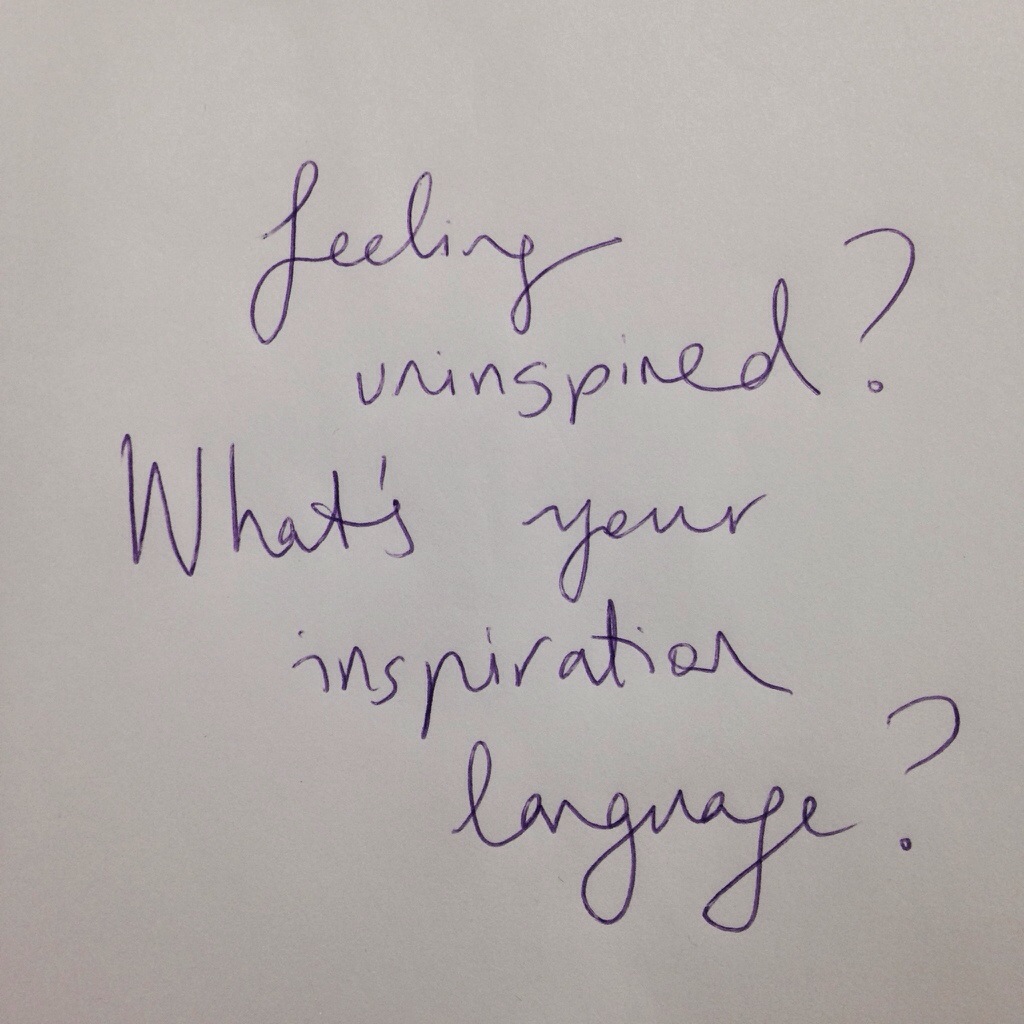 feeling
uninspired?
What's your
inspiration
language?